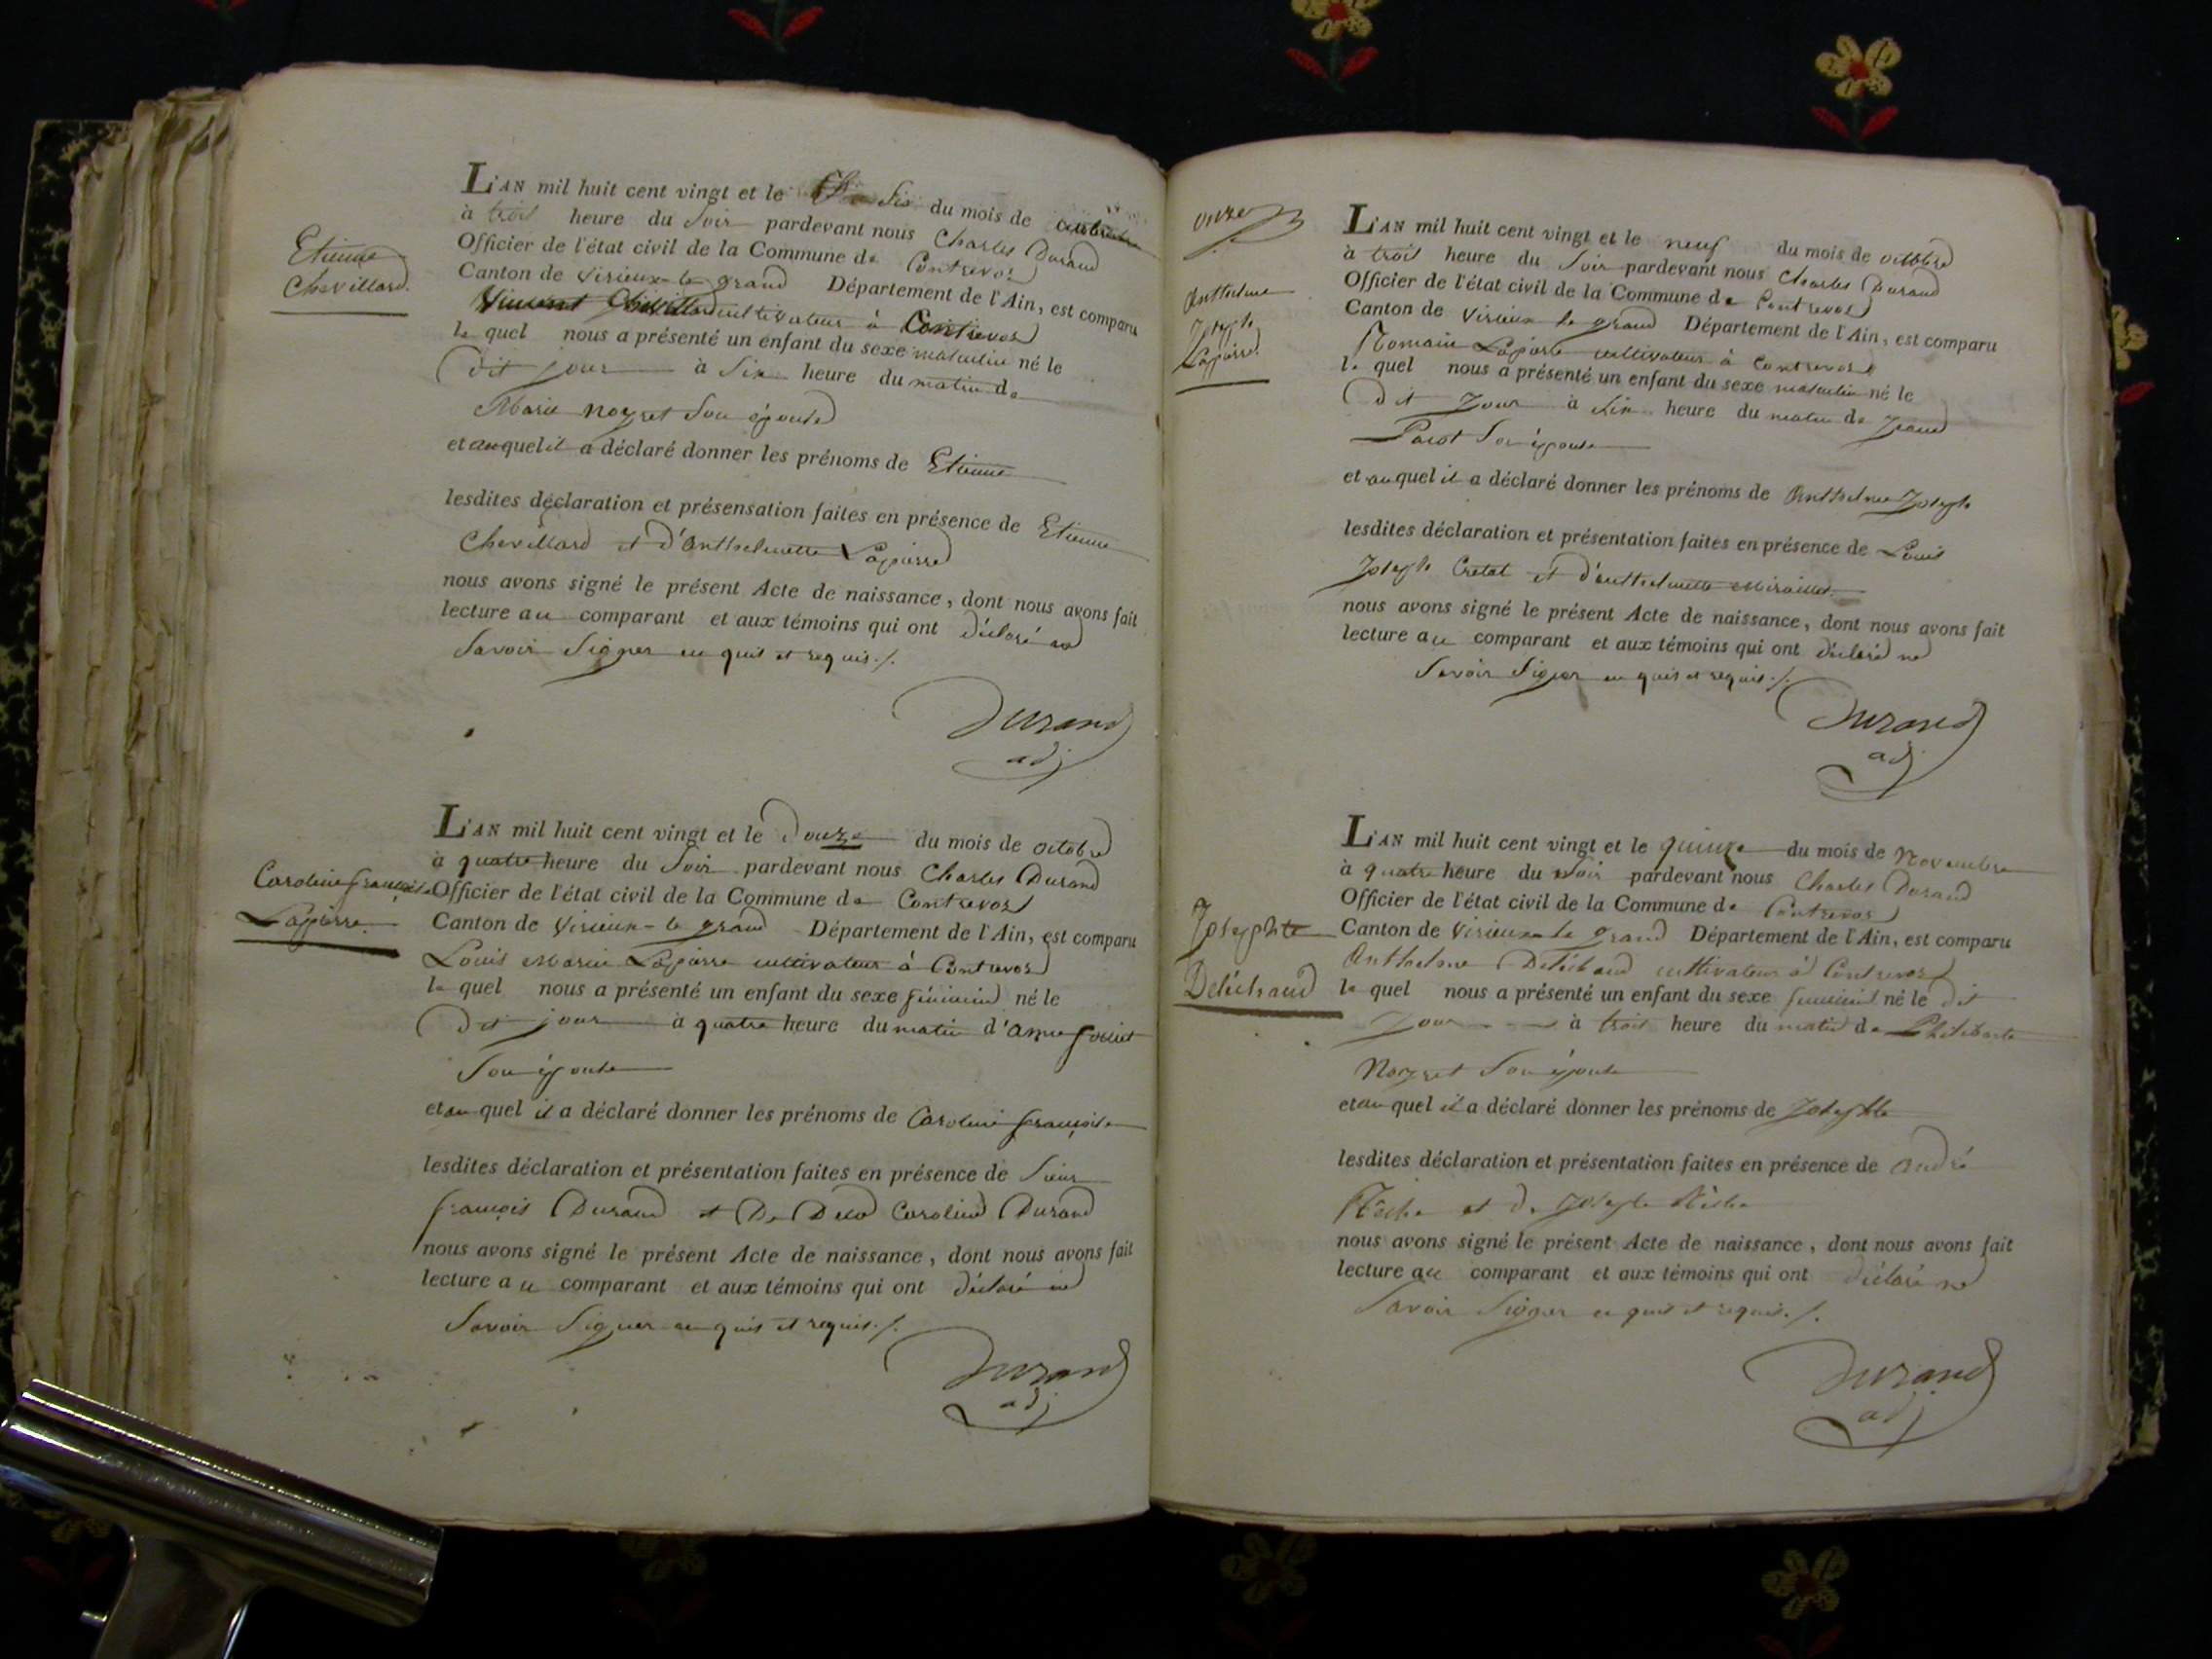 Etienne
Chevillard.
L'AN mil huit cent vingt et le six du mois de octobre
à trois heure du soir pardevant nous Charles Durand
Officier de l'état civil de la Commune de Contrevos
Canton de Virieux le grand Département de l'Ain, est comparu
Vincent Chevillard cultivateur à Contrevos
le quel nous a présenté un enfant du sexe masculin né le
dit jour à six heure du matin de
Marie Noyret son épouse
et auquel il a déclaré donner les prénoms de Etienne
lesdites déclaration et présensation faites en présence de Etienne
Chevillard et d'Anthelmette Lapierre
nous avons signé le présent Acte de naissance, dont nous avons fait
lecture au comparant et aux témoins qui ont déclaré ne
savoir signer enquis et requis./.
Durand
adj
Caroline françoise
Lapierre.
L'AN mil huit cent vingt et le Douze du mois de octobre
à quatre heure du soir pardevant nous Charles Durand
Officier de l'état civil de la Commune de Contrevos
Canton de Virieux le grand Département de l'Ain, est comparu
Louis Marie Lapierre cultivateur à Contrevos
le quel nous a présenté un enfant du sexe féminin né le
dit jour à quatre heure du matin d'Anne
son épouse
et au quel il a déclaré donner les prénoms de Caroline françoise
lesdites déclaration et présentation faites en présence de Sieur
françois Durand et De Caroline Durand
nous avons signé le présent Acte de naissance, dont nous avons fait
lecture au comparant et aux témoins qui ont déclaré ne
savoir signer enquis et requis./.
Durand
adj
onze
Anthelme
Joseph
Lapierre.
L'AN mil huit cent vingt et le neuf du mois de octobre
à trois heure du soir pardevant nous Charles Durand
Officier de l'état civil de la Commune de Contrevos
Canton de Virieux le grand Département de l'Ain, est comparu
Romain Lapierre cultivateur à Contrevos
le quel nous a présenté un enfant du sexe masculin né le
dit jour à six heure du matin de
son épouse
et auquel il a déclaré donner les prénoms de Anthelme Joseph
lesdites déclaration et présentation faites en présence de Louis
Joseph Cretal et d'anthelmette Miraillet
nous avons signé le présent Acte de naissance, dont nous avons fait
lecture au comparant et aux témoins qui ont déclaré ne
savoir signer enquis et requis./.
Durand
adj
Josephte
Deléchaud
L'AN mil huit cent vingt et le quinze du mois de Novembre
à quatre heure du soir pardevant nous Charles Durand
Officier de l'état civil de la Commune de Contrevos
Canton de Virieux le grand Département de l'Ain, est comparu
Anthelme Deléchaud cultivateur à Contrevos
le quel nous a présenté un enfant du sexe feminin né le dit
jour à trois heure du matin de Philiberte
Noyret son épouse
et au quel il a déclaré donner les prénoms de Josephte
lesdites déclaration et présentation faites en présence de André
et de Joseph
nous avons signé le présent Acte de naissance, dont nous avons fait
lecture au comparant et aux témoins qui ont déclaré ne
savoir signer enquis et requis./.
Durand
adj